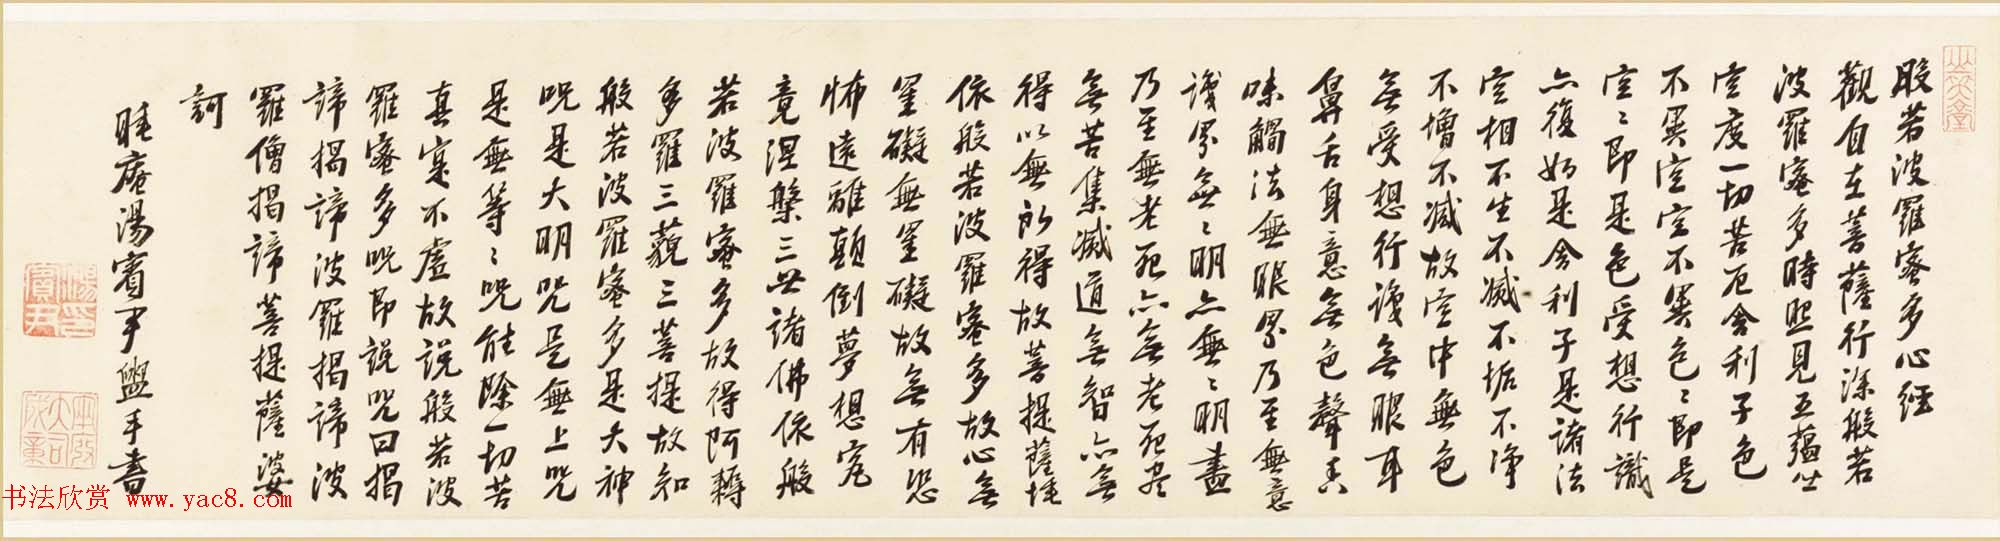 般若波羅蜜多心經
觀自在菩薩行深般若
波羅蜜多時照見五蘊皆
空度一切苦厄舍利子色
不異空空不異色〻即是
空〻即是色受想行識
亦復如是舍利子是諸法
空相不生不滅不垢不淨
不增不減故空中無色
無受想行識無眼耳
鼻舌身意無色聲香
味觸法無眼界乃至無意
識界無〻明亦無〻明盡
乃至無老死亦無老死盡
無苦集滅道無智亦無
得以無所得故菩提薩埵
依般若波羅蜜多故心無
罣礙無罣礙故無有恐
怖遠離顛倒夢想究
竟涅槃三世諸佛依般
若波羅蜜多故得阿耨
多羅三藐三菩提故知
般若波羅蜜多是大神
呪是大明呪是無上呪
是無等〻呪能除一切苦
真實不虛故說般若波
羅蜜多呪即說呪曰揭
諦揭諦波羅揭諦波
羅僧揭諦菩提薩婆
訶
睡庵湯賓尹盥手書
湯印賓尹
书法欣赏 www.yac8.com